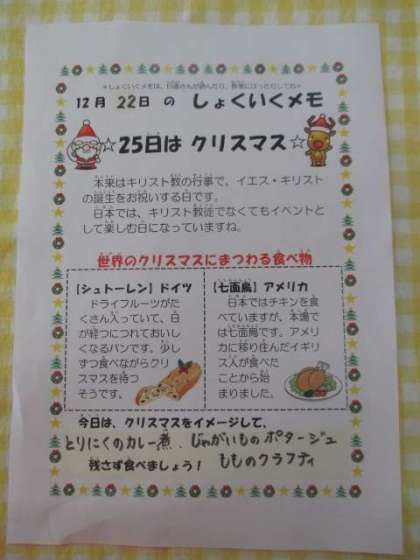 12月 22日 の しょくいくメモ
☆25日は クリスマス☆
本来はキリスト教の行事で、イエス・キリスト
の誕生をお祝いする日です。
日本では、キリスト教徒でなくてもイベントと
して楽しむ日になっていますね。
世界のクリスマスにまつわる食べ物
【シュトーレン】ドイツ
ドライフルーツがた
くさん入っていて、日
が経つにつれておいし
くなるパンです。少し
ずつ食べながらクリ
スマスを待つ
そうです。
【七面鳥】アメリカ
日本ではチキンを食
べていますが、本場で
は七面鳥です。アメリ
カに移り住んだイギリ
ス人が食べた
ことから始
まりました。
今日は、クリスマスをイメージして、
とりにくのカレー煮、じゃがいものポタージュ
残さず食べましょう! もものクラフティ